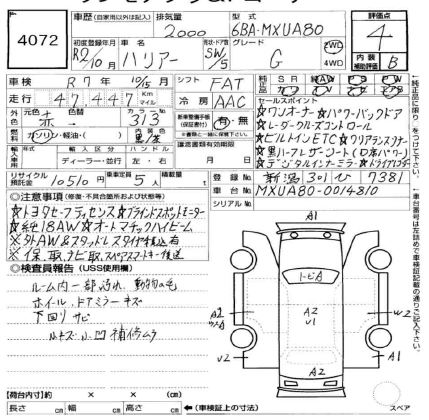 4072
車歴 (自家用以外は記入)
排気量
2000
型式
6BA-MXUA80
評価点
4
初度登録年月
R2/10月
車名
ハリアー
形状・ドア数
SW/5
グレード
G
2WD
4WD
内装補助評価
B
車検
R7年 10/5月
シフト
FAT
走行
47,447
Km
マイル
冷房
AAC
外色
元色
赤
カラーNo
3T3
燃料
ガソリン・軽油・( )
内装色
黒/茶
新車整備手帳(保証書付)
有・無
※書類と一緒に保管下さい。
輸入車
年式
輸入区分
ハンドル
ディーラー・並行
左・右
譲渡書類有効期限
月 日
リサイクル預託金
10510円
乗車定員
5人
積載量
t
純正品
SR
AW
PS
PW
セールスポイント
☆ワンオーナー☆パワーバックドア
☆レーダークルーズコントロール
☆ビルトインETC☆クリアランスソナー
☆黒ハーフレザーシート(D席パワー)
☆デジタルインナーミラー☆ドライブレコーダー
登録No
新潟301ひ7381
車台No
MXUA80-0014810
シリアルNo
◎注意事項(修復・不具合箇所および状態等)
☆トヨタセーフティセンス☆ブラインドスポットモニター
☆純18AW☆オートマチックハイビーム
※外AW&スタッドレスタイヤ積込有
※保、取、ナビ取、スペアスマートキー後送
◎検査員報告 (USS使用欄)
ルーム内一部汚れ、動物の毛
ホイル、ドアミラーキズ
下回りサビ
ルーフキズ小凹補修ムラ
A1
トビA
A2
A2
U1
W2
U2
A2
A1
【荷台内寸】約 × × (cm)
長さ cm 幅 cm 高さ cm ←(車検証上の寸法)
スペア
↑純正品に限り○をつけて下さい。
↑車台番号は左詰めで車検証記載の通りご記入下さい。